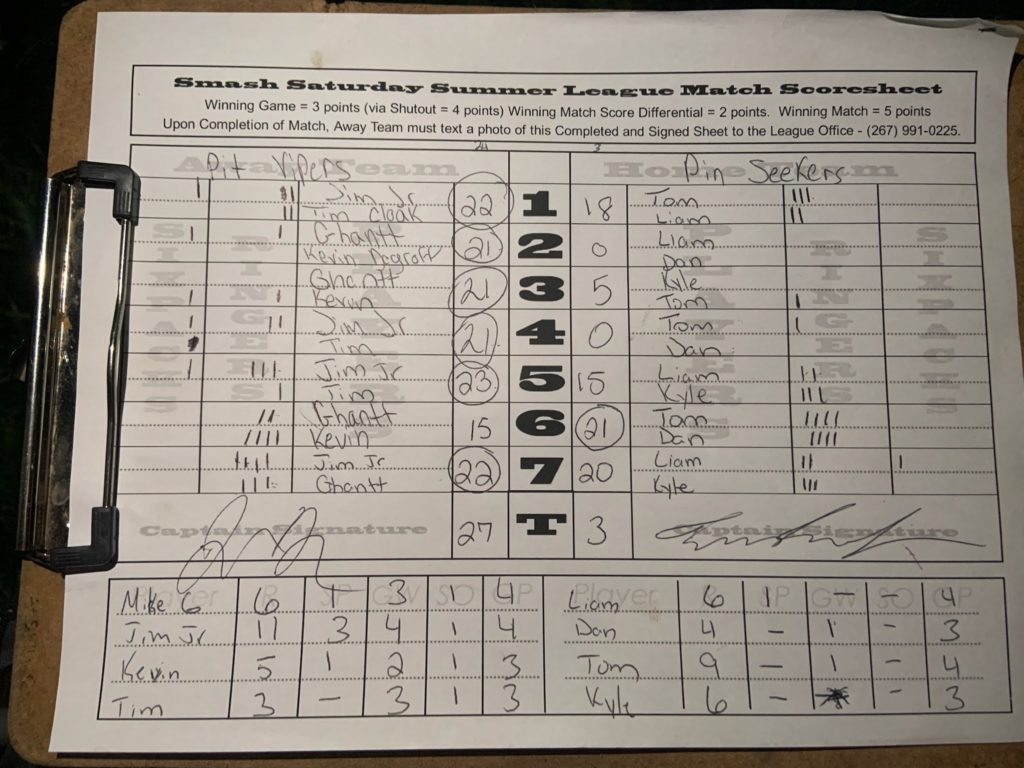 Smash Saturday Summer League Match Scoresheet
Winning Game = 3 points (via Shutout = 4 points) Winning Match Score Differential = 2 points. Winning Match = 5 points
Upon Completion of Match, Away Team must text a photo of this Completed and Signed Sheet to the League Office - (267) 991-0225.
Away Team Home Team
Pit Vipers 3 Pin Seekers
Jim Jr 22 1 18 Tom
Tim Cloak Liam
Ghantt 21 2 0 Liam
Kevin Degroff Dan
Ghantt 21 3 5 Kyle
Kevin Tom
Jim Jr 21 4 0 Tom
Tim Dan
Jim Jr 23 5 15 Liam
Tim Kyle
Ghantt 15 6 21 Tom
Kevin Dan
Jim Jr 22 7 20 Liam
Ghantt Kyle
SIXPACKS RINGERS PLAYERS PLAYERS RINGERS SIXPACKS
Captain Signature 27 T 3 Captain Signature
Player R SP GW SO GP Player R SP GW SO GP
Mike G 6 1 3 1 4 Liam 6 1 - - 4
Jim Jr 11 3 4 1 4 Dan 4 - 1 - 3
Kevin 5 1 2 1 3 Tom 9 - 1 - 4
Tim 3 - 3 1 3 Kyle 6 - - 3